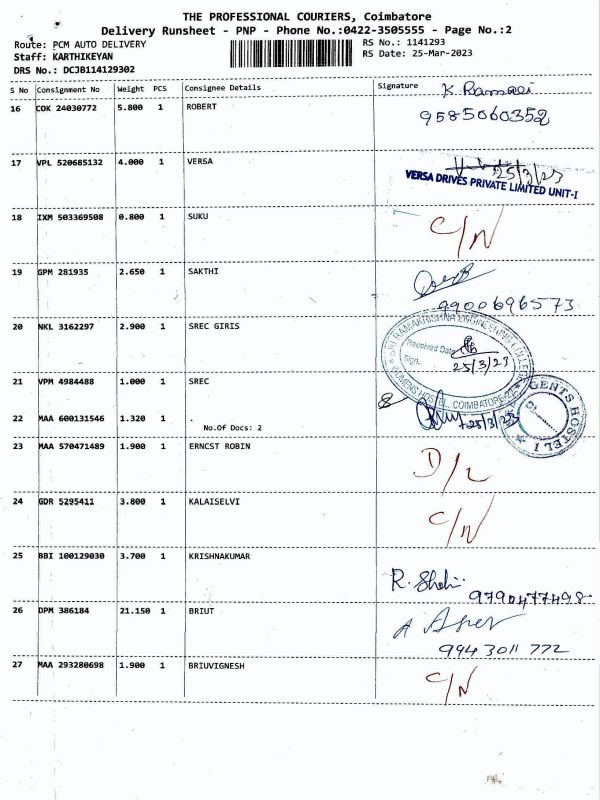 THE PROFESSIONAL COURIERS, Coimbatore
Delivery Runsheet - PNP - Phone No.:0422-3505555 - Page No.:2
Route: PCM AUTO DELIVERY
RS No.: 1141293
Staff: KARTHIKEYAN
RS Date: 25-Mar-2023
DRS No.: DCJB114129302
S No Consignment No Weight PCS Consignee Details Signature
16 COK 24030772 5.800 1 ROBERT
9585060352
17 VPL 520685132 4.000 1 VERSA
25/3/23
VERSA DRIVES PRIVATE LIMITED UNIT-I
18 IXM 503369508 0.800 1 SUKU C/N
19 GPM 281935 2.650 1 SAKTHI
9900696573
20 NKL 3162297 2.900 1 SREC GIRIS
SRI RAMAKRISHNA ENGINEERING COLLEGE
Received Date
Sign.
25/3/23
WOMENS HOSTEL, COIMBATORE-22
21 VPM 4984488 1.000 1 SREC
22 MAA 600131546 1.320 1 .
No.Of Docs: 2
25/3/23
GENTS HOSTEL I
23 MAA 570471489 1.900 1 ERNCST ROBIN D/L
24 GDR 5295411 3.800 1 KALAISELVI C/N
25 BBI 100129030 3.700 1 KRISHNAKUMAR
9790477498
26 DPM 386184 21.150 1 BRIUT
9943011772
27 MAA 293280698 1.900 1 BRIUVIGNESH C/N